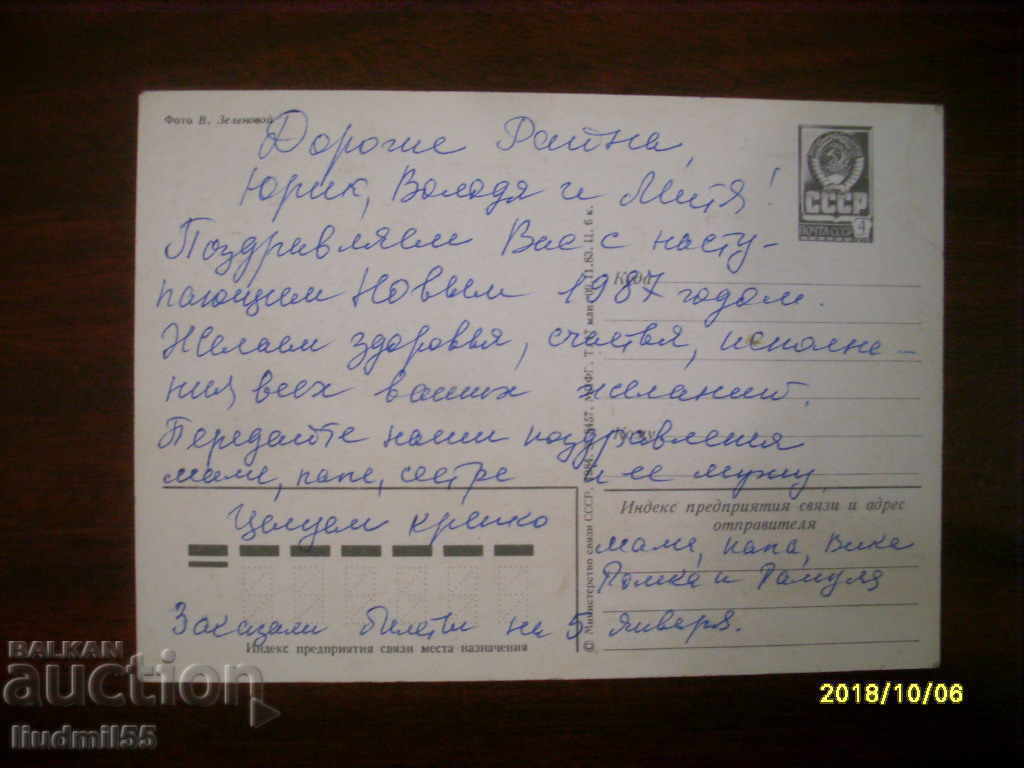 Фото В. Зеленовой
Дорогие Раитна,
Юрик, Володя и Митя!
Поздравляем Вас с насту-
пающим Новым 1987 годом.
Желаем здоровья, счастья, исполне-
ния всех ваших желаний.
Передайте наши поздравления
маме, папе, сестре и ее мужу
Целуем крепко
мама, папа, Вика
Ромка и
Заказали билеты на 5 января.
СССР
ПОЧТА СССР
4
Куда
Кому
Индекс предприятия связи и адрес
отправителя
Индекс предприятия связи места назначения
© Министерство связи СССР.
BALKAN
auction
liudmil55
2018/10/06